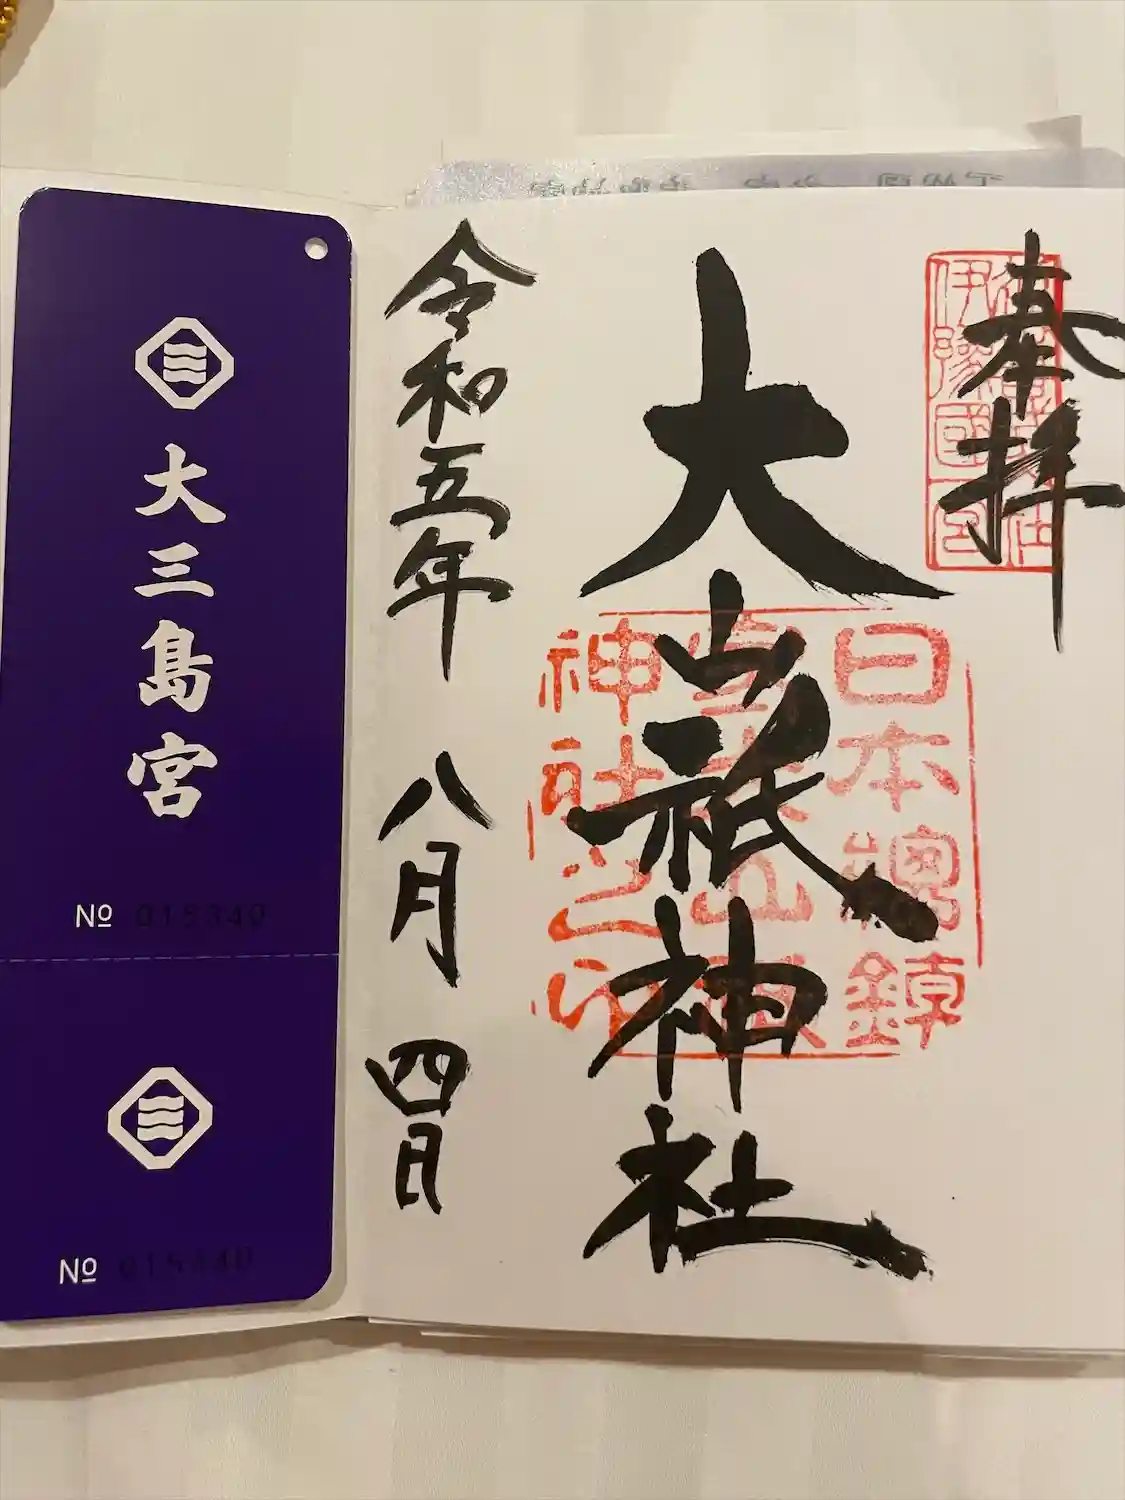 奉拝
伊豫國一宮
大山祇神社
日本總鎮
守大山祇
神社之印
令和五年 八月 四日
大三島宮
№ 015340
№ 015340